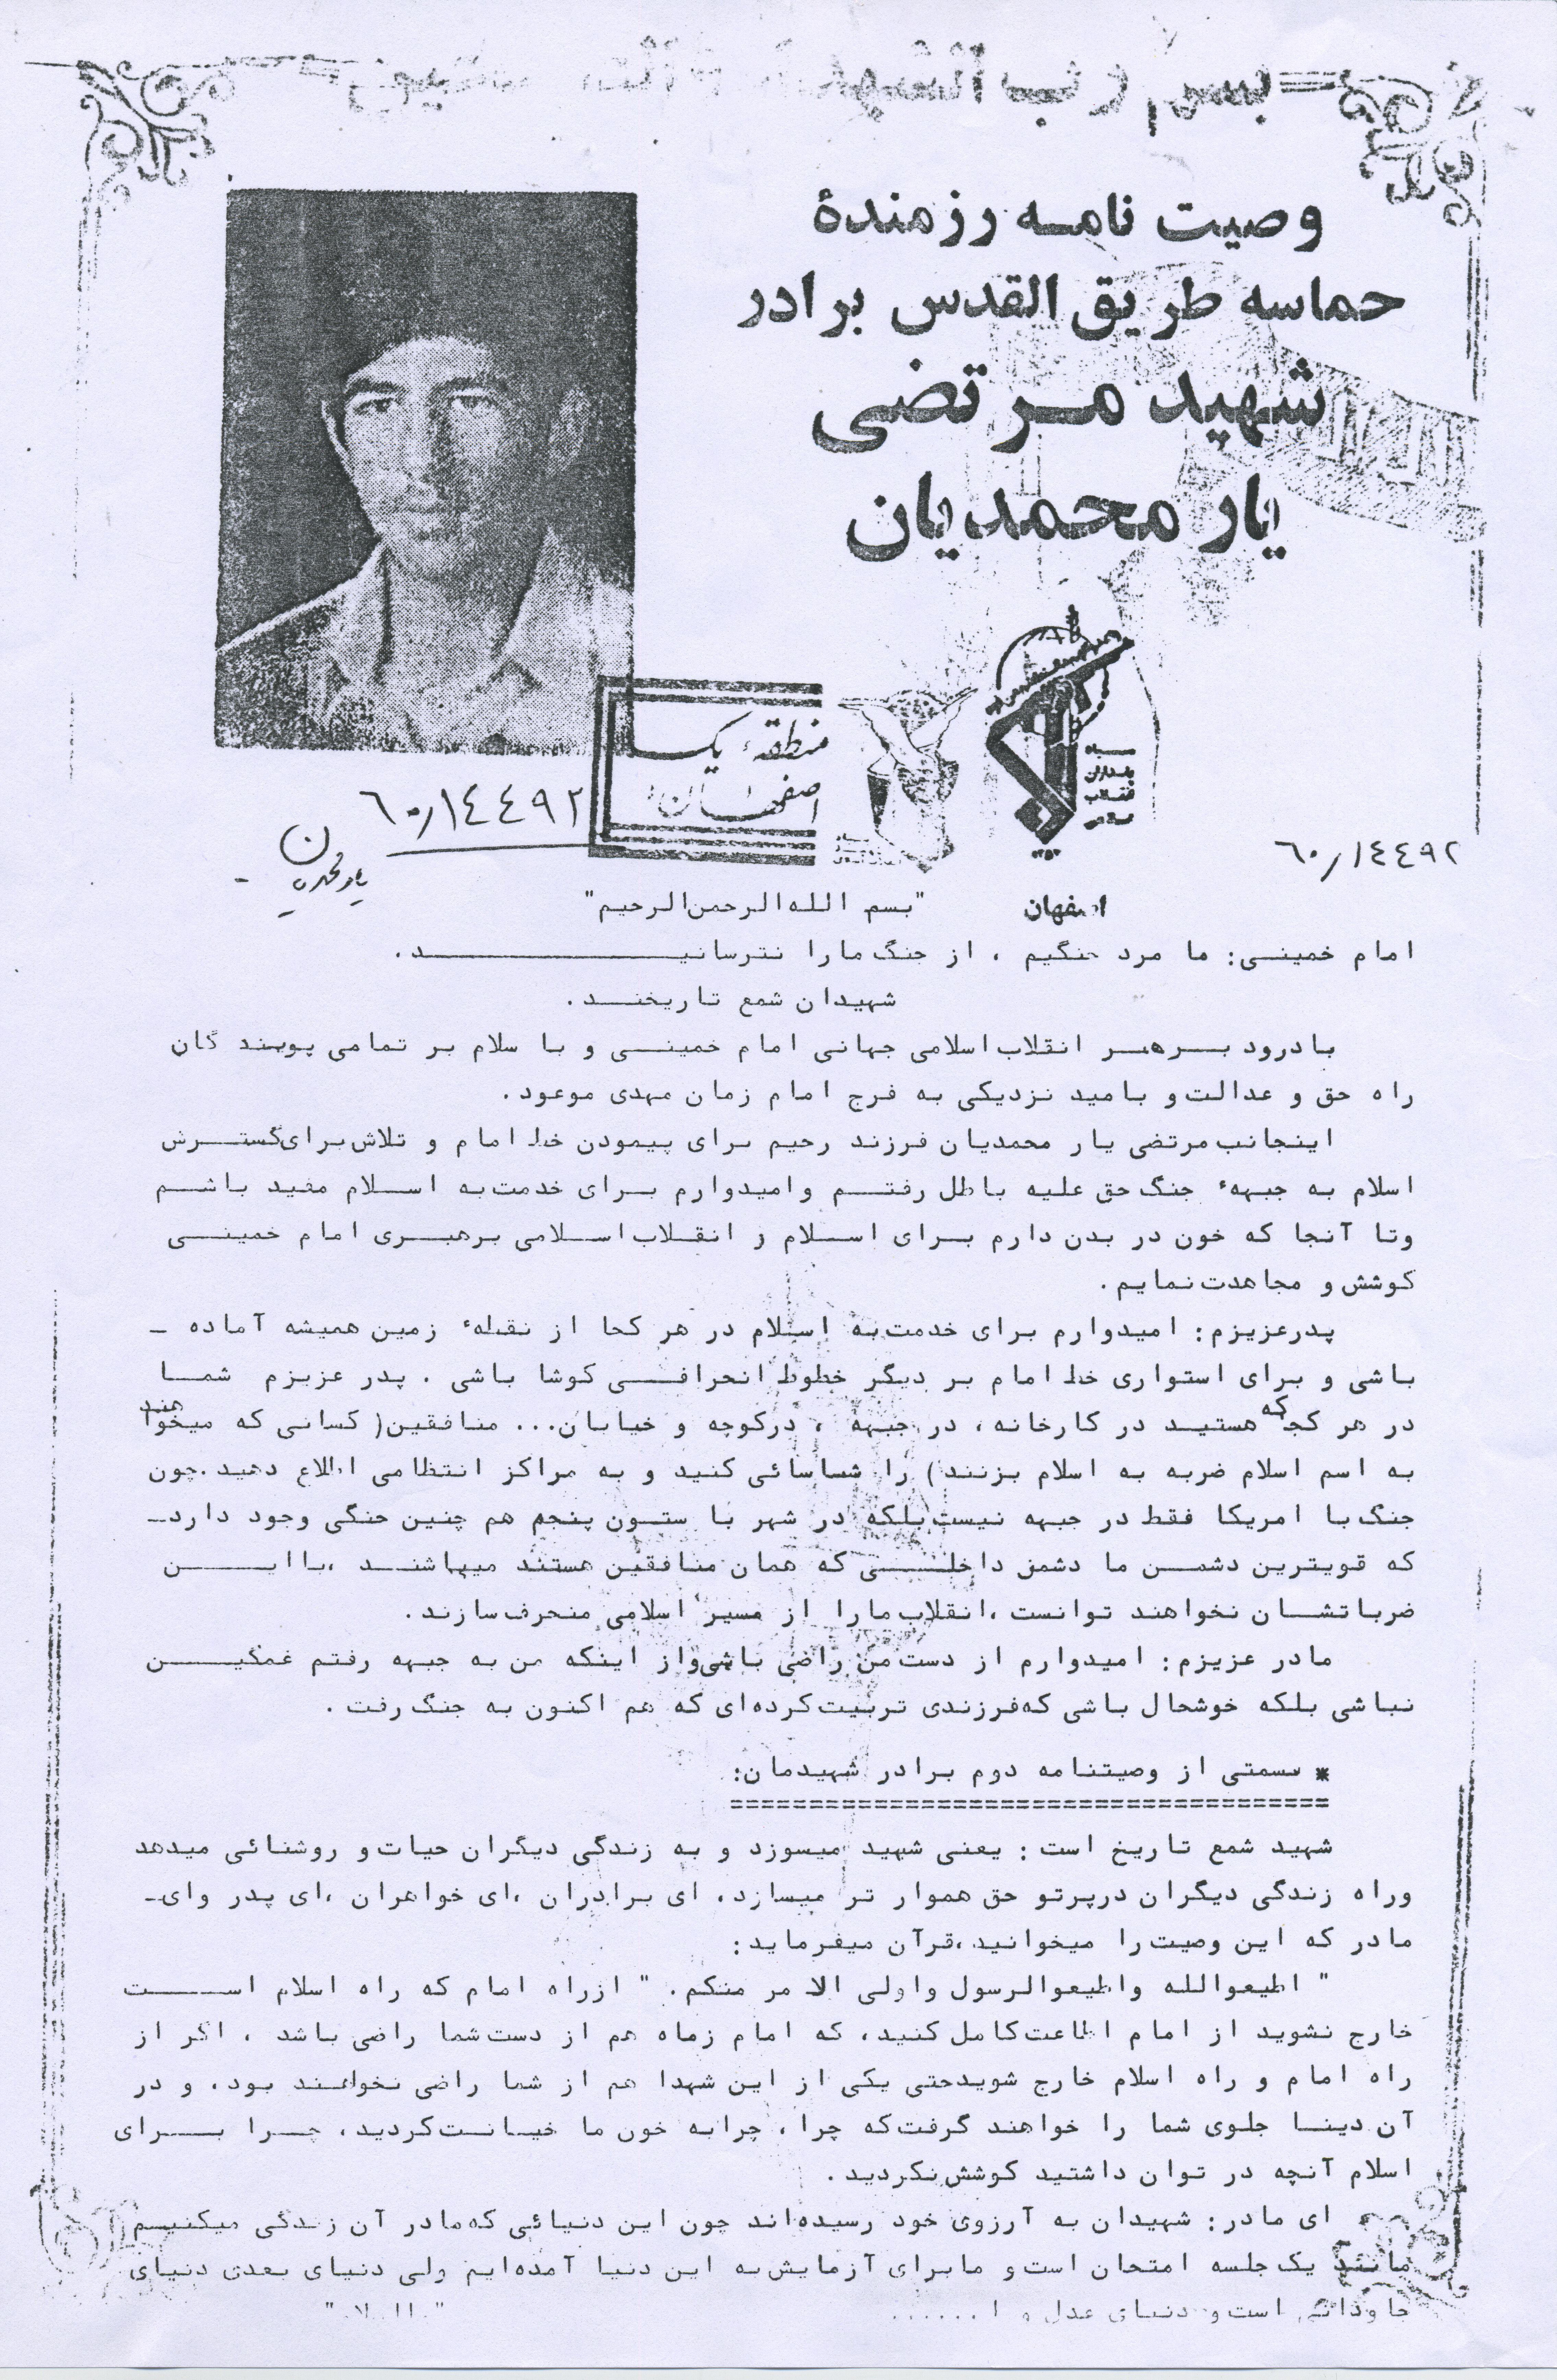 بسم رب الشهدا
وصیت نامه رزمندهٔ
حماسه طریق القدس برادر
شهید مرتضی
یارمحمدیان
منطقهٔ یک
اصفهان
سپاه
پاسداران
انقلاب
اسلامی
۶۰/۱۴۴۹۲
یارمحمدیان
۶۰/۱۴۴۹۲
اصفهان
"بسم الله الرحمن الرحیم"
امام خمینی: ما مرد جنگیم ، از جنگ ما را نترسانید.
شهیدان شمع تاریخند.
با درود بر رهبر انقلاب اسلامی جهانی امام خمینی و با سلام بر تمامی پویند گان
راه حق و عدالت و بامید نزدیکی به فرج امام زمان مهدی موعود.
اینجانب مرتضی یار محمدیان فرزند رحیم برای پیمودن خط امام و تلاش برای گسترش
اسلام به جبههٔ جنگ حق علیه باطل رفتم و امیدوارم برای خدمت به اسلام مفید باشم
وتا آنجا که خون در بدن دارم برای اسلام و انقلاب اسلامی برهبری امام خمینی
کوشش و مجاهدت نمایم.
پدرعزیزم: امیدوارم برای خدمت به اسلام در هر کجا از نقطهٔ زمین همیشه آماده ـ
باشی و برای استواری خط امام بر دیگر خطوط انحرافی کوشا باشی . پدر عزیزم شما
در هر کجا که هستید در کارخانه، در جبهه ، درکوچه و خیابان... منافقین( کسانی که میخواهند
به اسم اسلام ضربه به اسلام بزنند) را شناسائی کنید و به مراکز انتظامی اطلاع دهید.چون
جنگ با امریکا فقط در جبهه نیست بلکه در شهر با ستون پنجم هم چنین جنگی وجود دارد ـ
که قویترین دشمن ما دشمن داخلی که همان منافقین هستند میباشند ،با این
ضرباتشان نخواهند توانست ،انقلاب ما را از مسیر اسلامی منحرف سازند.
مادر عزیزم: امیدوارم از دست من راضی باشی واز اینکه من به جبهه رفتم غمگین
نباشی بلکه خوشحال باشی که فرزندی تربیت کرده‌ای که هم اکنون به جنگ رفت .
* قسمتی از وصیتنامه دوم برادر شهیدمان:
شهید شمع تاریخ است : یعنی شهید میسوزد و به زندگی دیگران حیات و روشنائی میدهد
وراه زندگی دیگران درپرتو حق هموار تر میسازد، ای برادران ،ای خواهران ،ای پدر وای ـ
مادر که این وصیت را میخوانید،قرآن میفرماید:
" اطیعوالله واطیعوالرسول واولی الا مر منکم. " ازراه امام که راه اسلام است
خارج نشوید از امام اطاعت کامل کنید، که امام زماه هم از دست شما راضی باشد ، اگر از
راه امام و راه اسلام خارج شویدحتی یکی از این شهدا هم از شما راضی نخواهند بود، و در
آن دینا جلوی شما را خواهند گرفت که چرا ، چرابه خون ما خیانت کردید، چرا برای
اسلام آنچه در توان داشتید کوشش نکردید.
ای مادر: شهیدان به آرزوی خود رسیده‌اند چون این دنیائی که مادر آن زندگی میکنیم
مانند یک جلسه امتحان است و مابرای آزمایش به این دنیا آمده‌ایم ولی دنیای بعدی دنیای
جاودانی است و دنیای عدل و ا......
"والسلام"